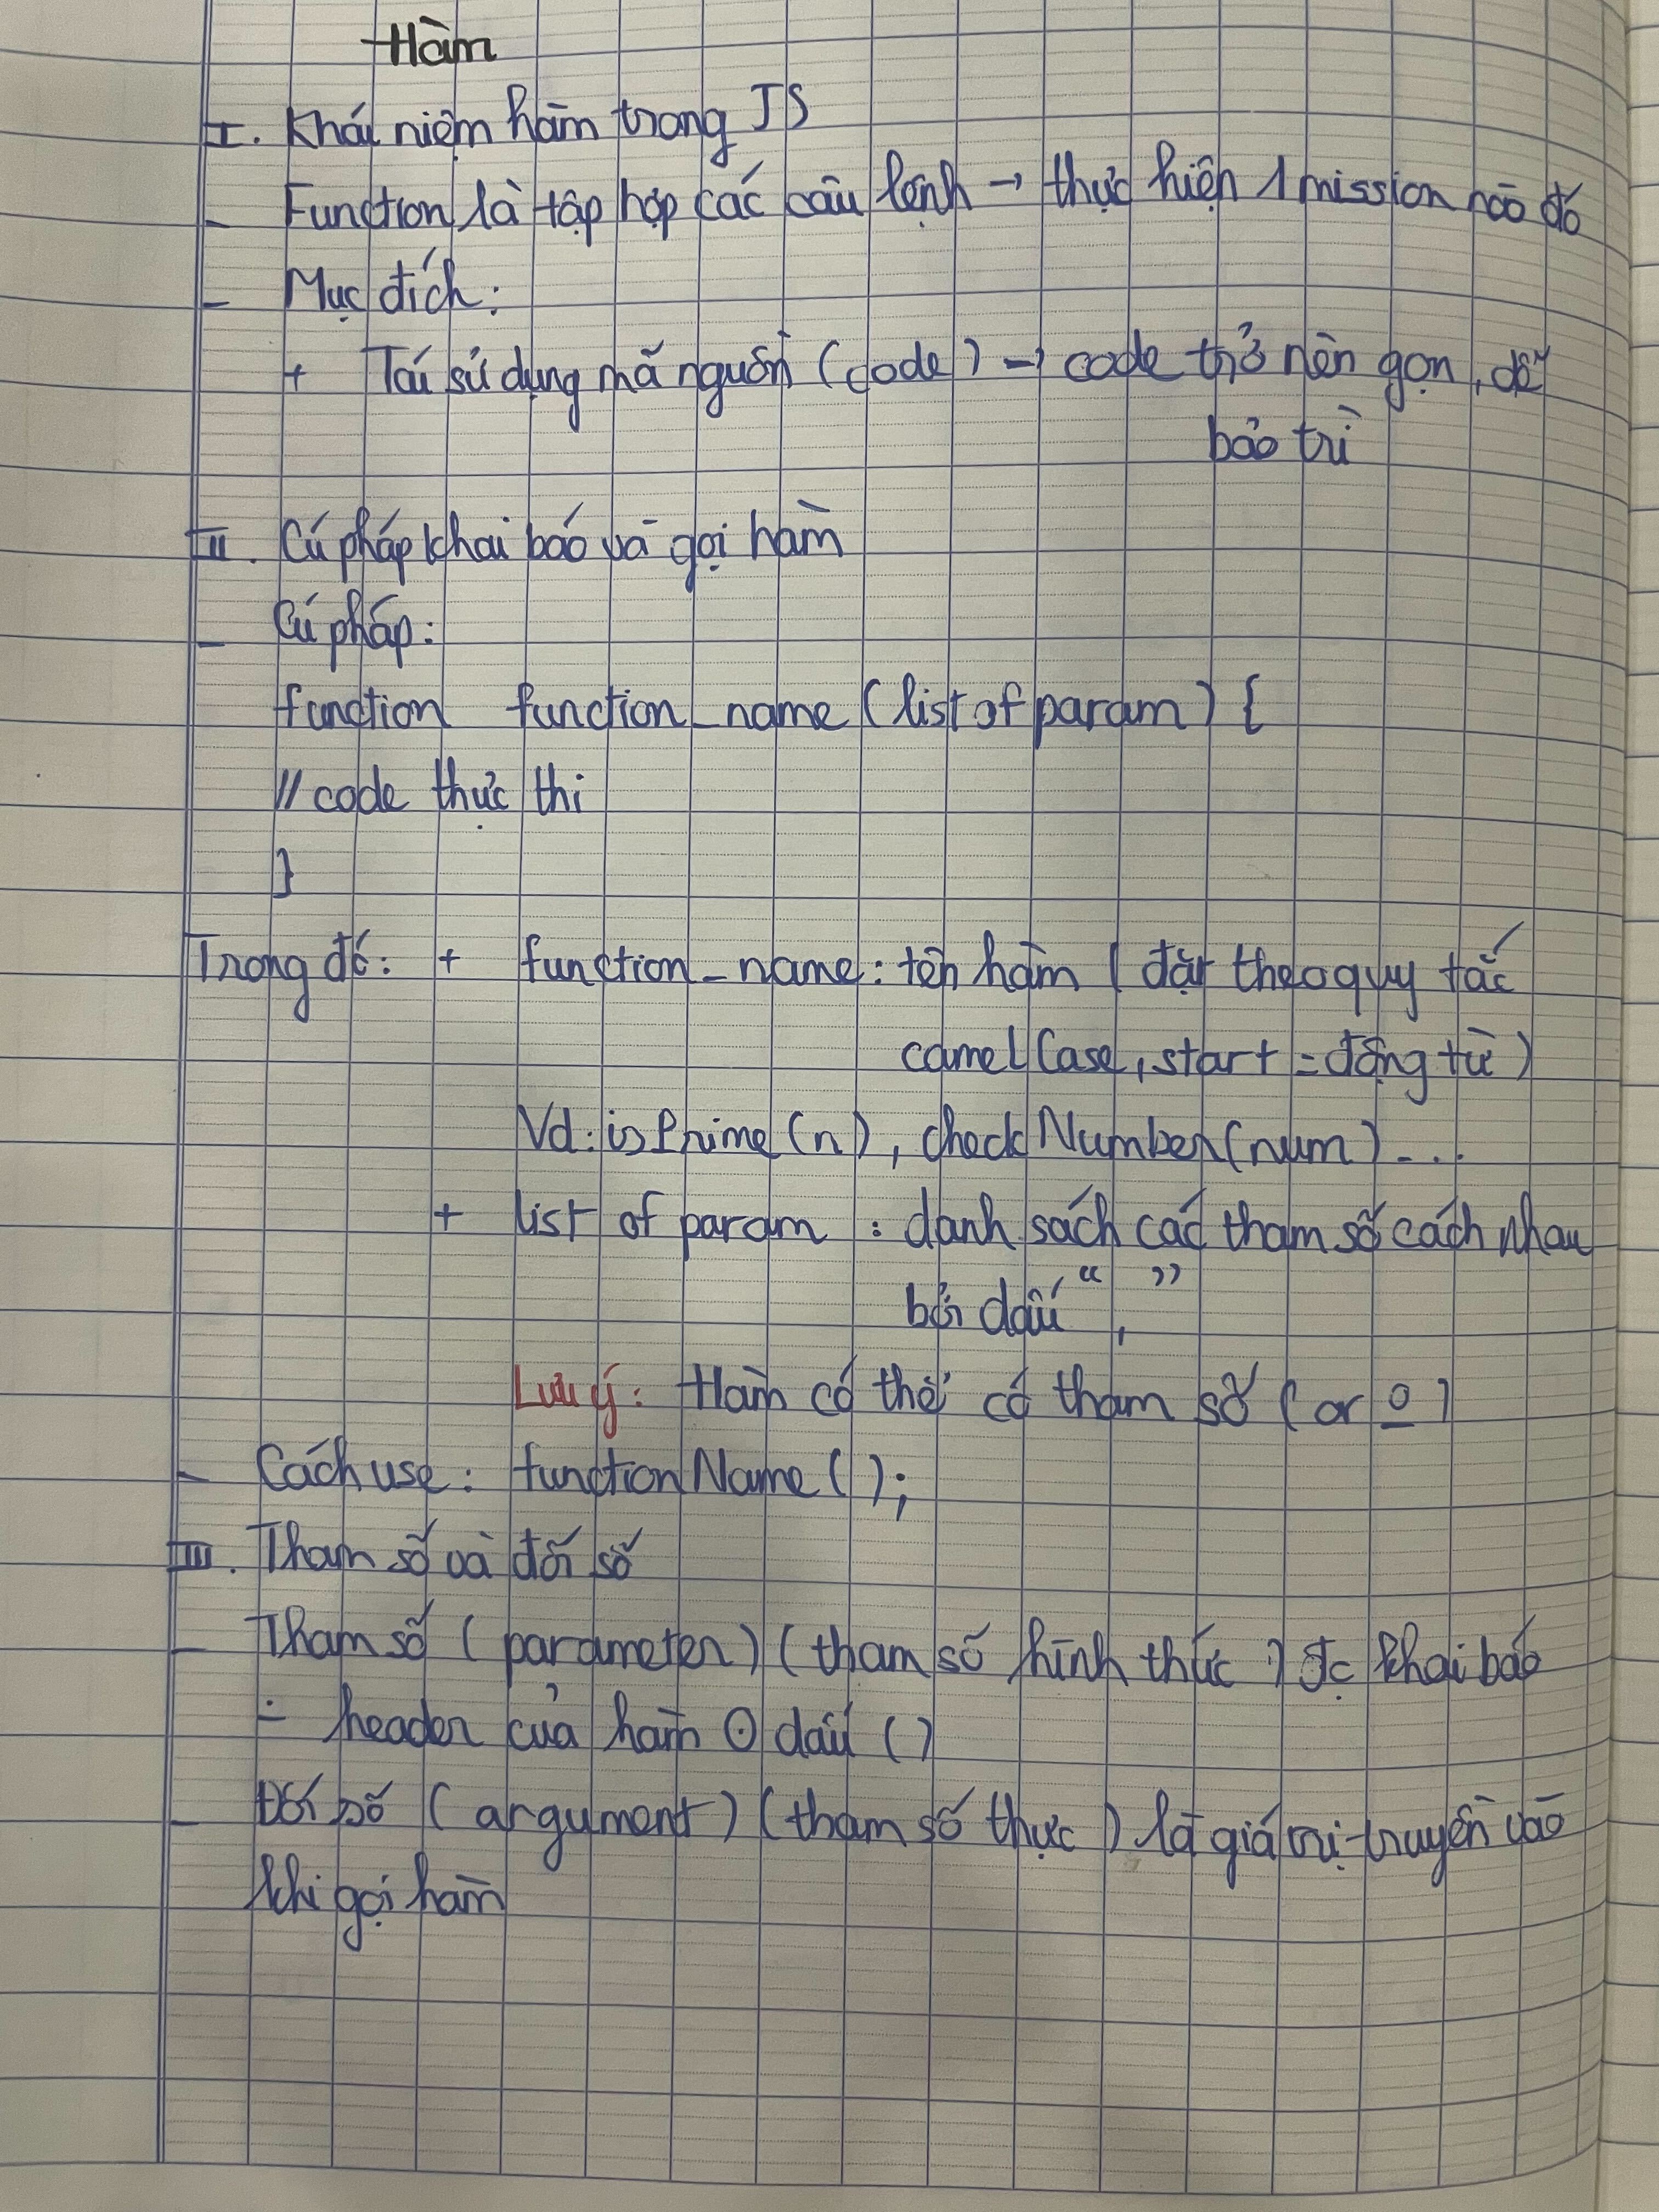 Hàm
I. Khái niệm hàm trong JS
- Function là tập hợp các câu lệnh → thực hiện 1 mission nào đó
- Mục đích:
+ Tái sử dụng mã nguồn (code) → code trở nên gọn, dễ
bảo trì
II. Cú pháp khai báo và gọi hàm
- Cú pháp:
function function_name (list of param) {
// code thực thi
}
Trong đó: + function_name: tên hàm (đặt theo quy tắc
camelCase, start = động từ)
Vd: isPrime(n), checkNumber(num)...
+ list of param : danh sách các tham số cách nhau
bởi dấu “ , ”
Lưu ý: Hàm có thể có tham số (or 0)
- Cách use: functionName();
III. Tham số và đối số
- Tham số (parameter) (tham số hình thức) đc khai báo
header của hàm dấu ()
- Đối số (argument) (tham số thực) là giá trị truyền vào
khi gọi hàm